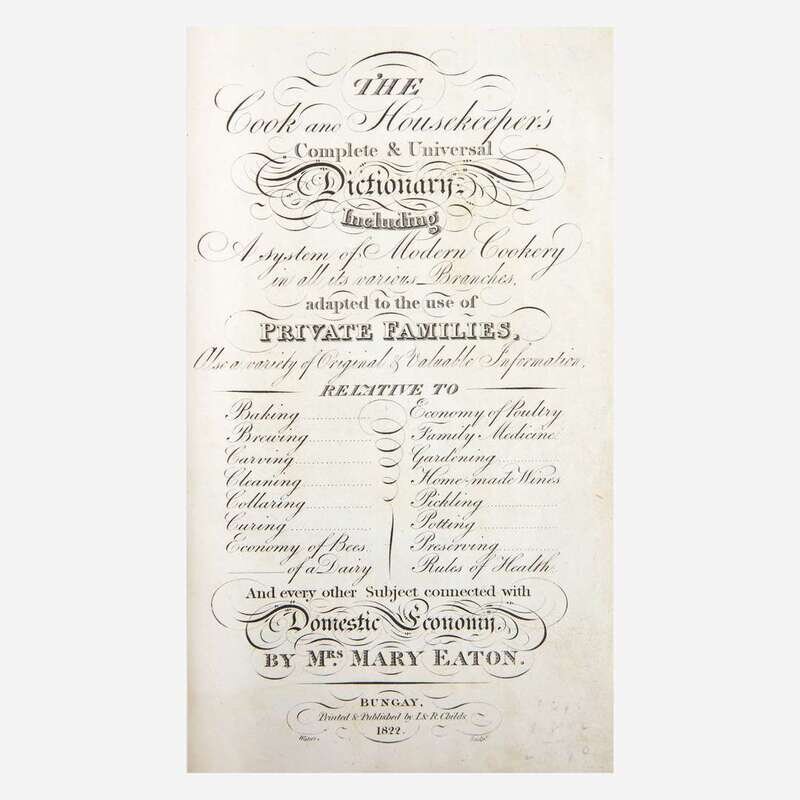 THE
Cook and Housekeeper's
Complete & Universal
Dictionary;
Including
A System of Modern Cookery
in all its various Branches,
adapted to the use of
PRIVATE FAMILIES,
Also a variety of Original & Valuable Information,
RELATIVE TO
Baking Economy of Poultry
Brewing Family Medicine
Carving Gardening
Cleaning Home-made Wines
Collaring Pickling
Curing Potting
Economy of Bees Preserving
of a Dairy Rules of Health
And every other Subject connected with
Domestic Economy,
BY MRS. MARY EATON.
BUNGAY,
Printed & Published by I. & R. Childs
1822.